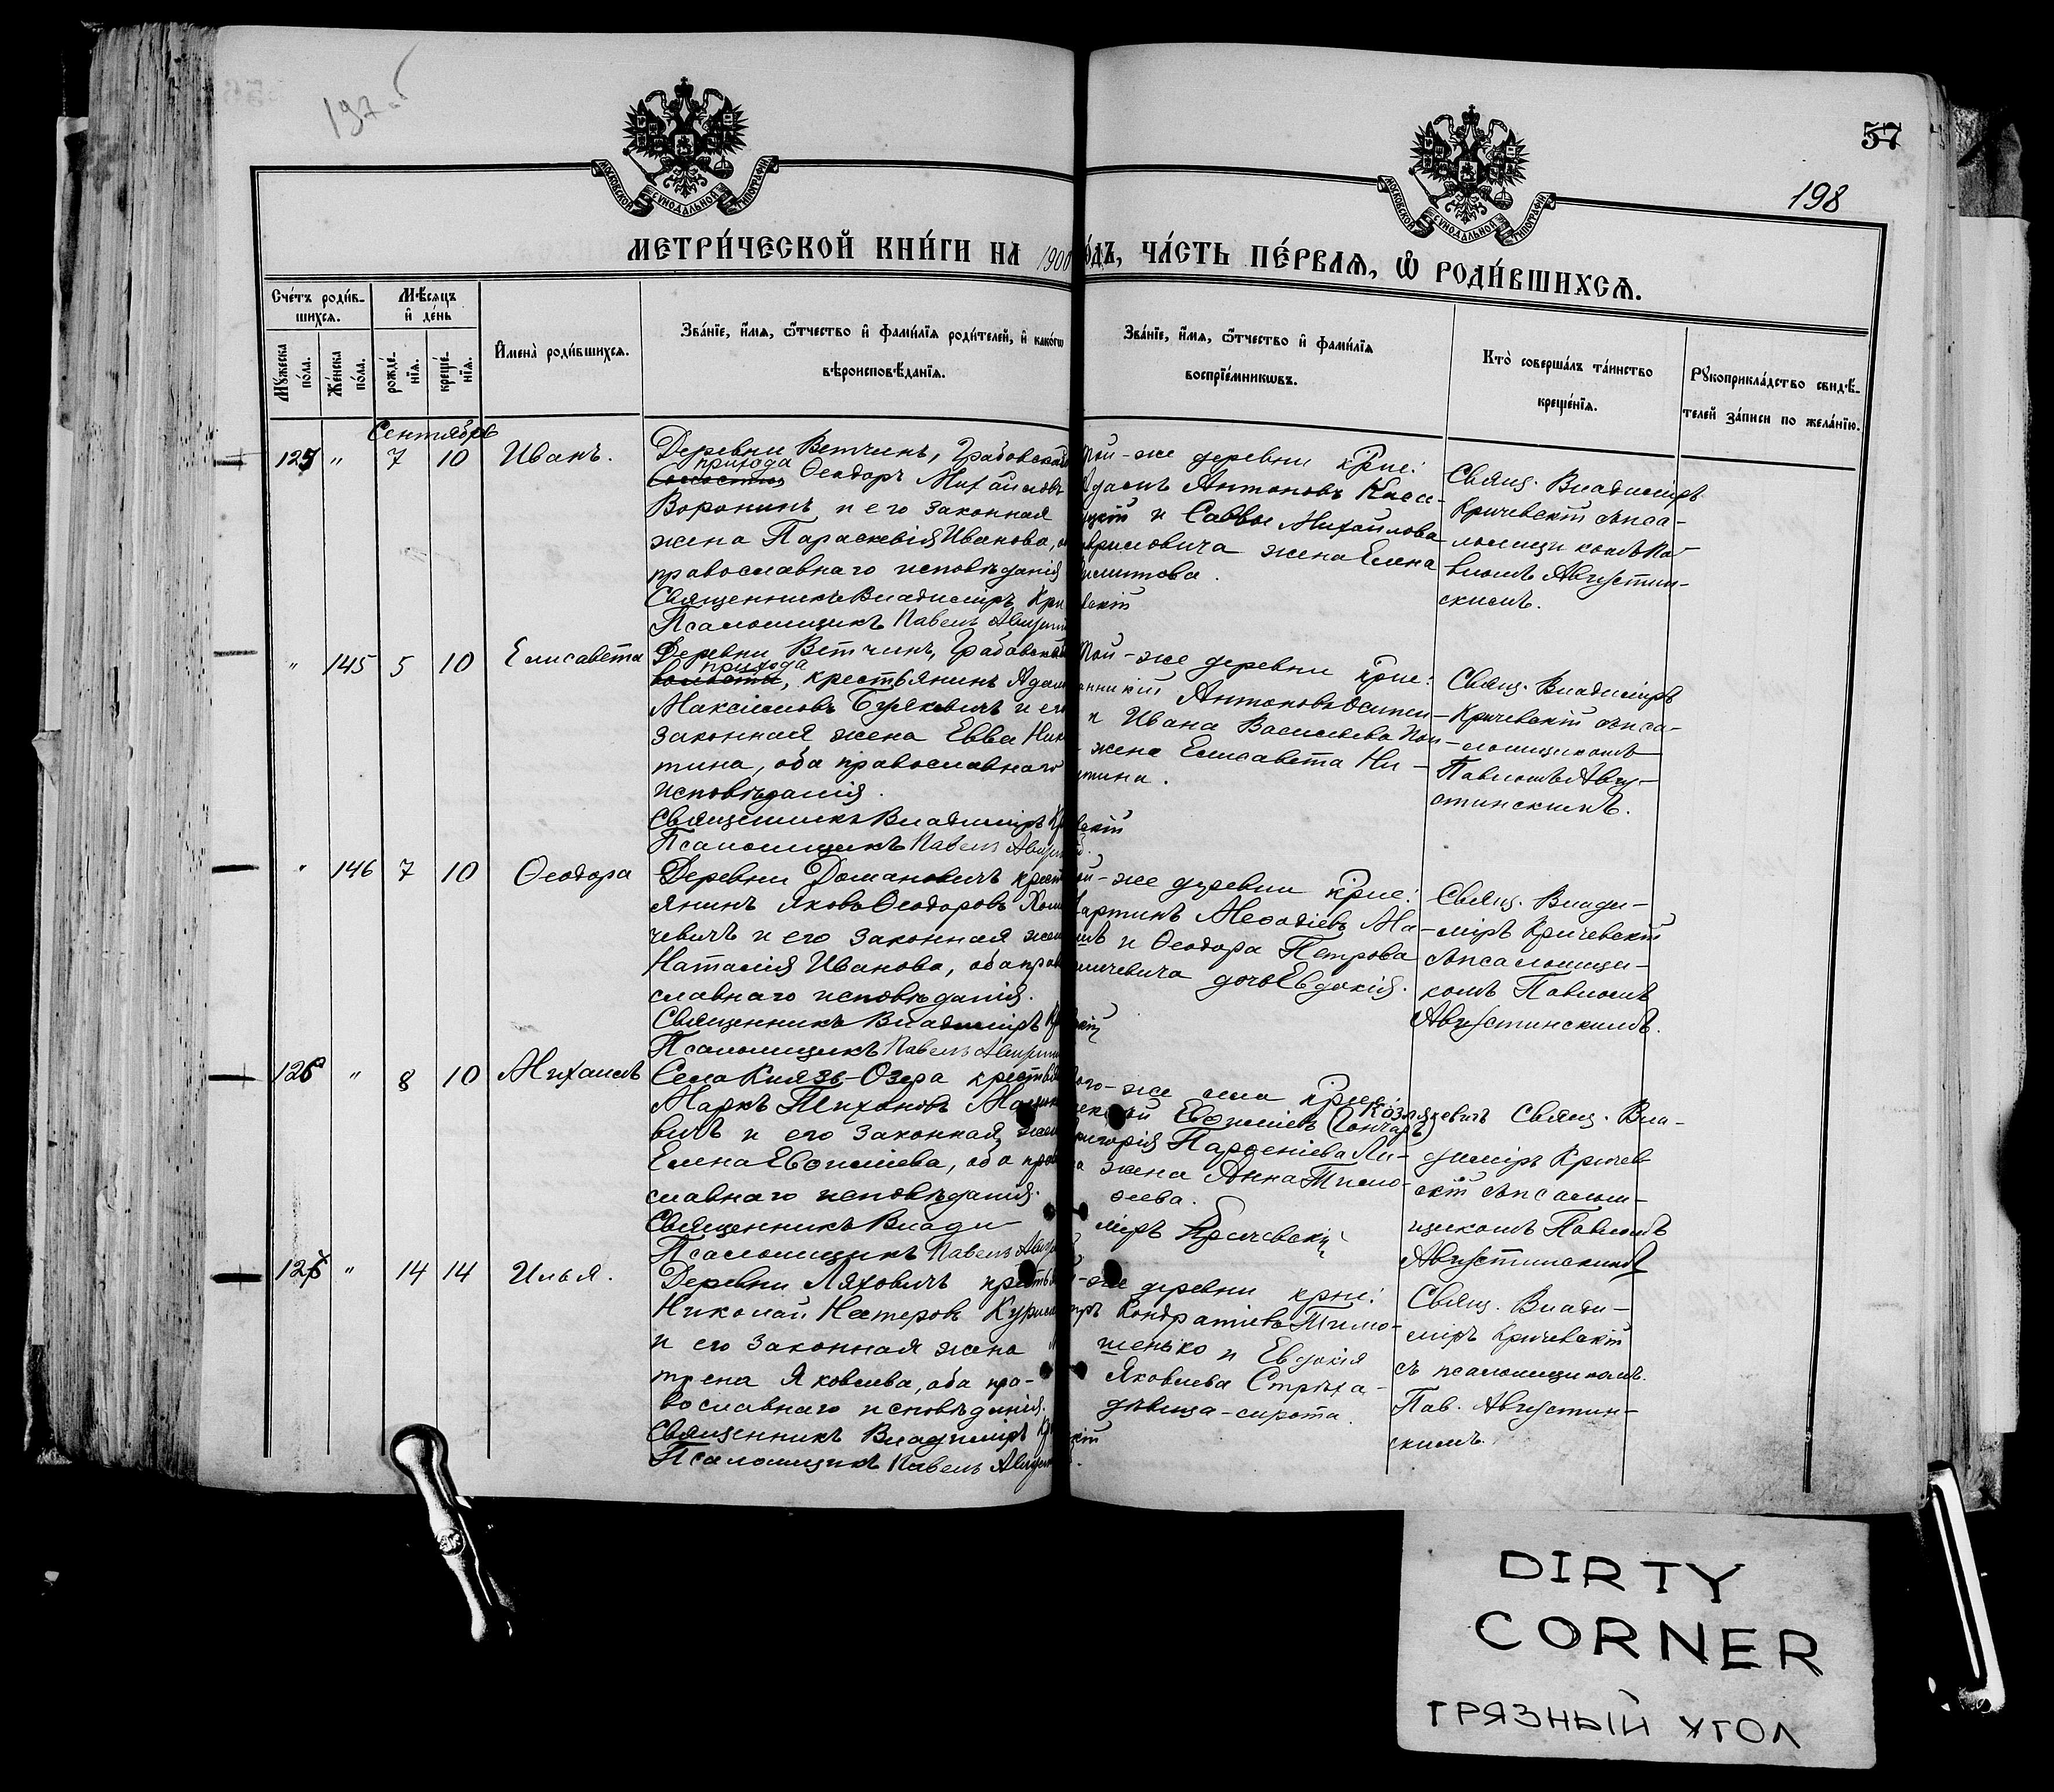 197об
57
198
МОСКОВСКОЙ СѴНОДАЛЬНОЙ ТИПОГРАФІИ
МОСКОВСКОЙ СѴНОДАЛЬНОЙ ТИПОГРАФІИ
МЕТРИ́ЧЕСКОЙ КНИ́ГИ НА 1900 О́ДЪ, ЧА́СТЬ ПЕ́РВАЯ, Ѽ РОДИ́ВШИХСЯ.
Сче́тъ роди́в-
шихся.
Мѣ́сяцъ
и҆ де́нь
Мꙋжеска по́ла.
Же́нска по́ла.
рожде́-
нїя.
креще́-
нїя.
И҆мена̀ роди́вшихся.
Зва́нїе, и҆́мя, ѻ҆́тчество и҆ фами́лїя роди́телей, и҆ како́гѡ
вѣроисповѣ́данїя.
Зва́нїе, и҆́мя, ѻ҆́тчество и҆ фами́лїя
воспрїе́мникѡвъ.
Кто̀ соверша́лъ та́инство
креще́нїя.
Рꙋкоприкла́дство свидѣ́-
телей за́писи по жела́нїю.
Сентябрь
125 " 7 10 Иванъ.
Деревни Ветчинъ, Грабовской
прихода
Ѳеодоръ Михайловъ
Воронинъ и его законная
жена Параскевія Иванова,
православнаго исповѣданія
Священникъ Владиміръ Кри
Псаломщикъ Павелъ Августи
той-же деревни крис:
Адамъ Антоновъ Каса-
цкій и Саввы Михайлова
жена Елена
вскій
Свящ. Владиміръ
Кричевскій съ пса-
ломщикомъ Па-
вломъ Августин-
скимъ.
" 145 5 10 Елисавета
Деревни Ветчинъ, Грабовской
прихода
волости, крестьянинъ Адам
Максимовъ Бурякевичъ и его
законная жена Евва Ники
тина, оба православнаго
исповѣданія.
Священникъ Владиміръ Кр
Псаломщикъ Павелъ Августи
той-же деревни крис:
Антоновъ
и Ивана Васильева
жена Елисавета Ни-
тина.
вскій
Свящ. Владиміръ
Кричевскій съ пса-
ломщикомъ
Павломъ Авгу-
стинскимъ.
" 146 7 10 Ѳеодора
Деревни Домановичъ крест
янинъ Яковъ Ѳеодоровъ Хом
чевичъ и его законная жен
Наталія Ивановa, оба прав
славнаго исповѣданія.
Священникъ Владиміръ Кр
Псаломщикъ Павелъ Августи
ой-же деревни крис:
артинъ Меѳодіевъ Ма-
и Ѳеодора Петрова
мичевича дочь Евдокія.
Свящ. Влади-
міръ Кричевскій
съ псаломщи-
комъ Павломъ
Августинскимъ.
126 " 8 10 Михаилъ
Села Князь-Озера крестья
Маркъ Тихоновъ
вичъ и его законная жен
Елена Евѳиміева, оба прав
славнаго исповѣданія.
Священникъ Влади
Псаломщикъ Павелъ Авгу
того-же села крис:
Козлякевичъ
Евѳиміевъ (Гончаръ)
ригорія Парѳеніева Ли-
жена Анна Тимо-
ѳеева.
міръ Кричевскій
Свящ. Вла-
диміръ Кричев-
скій съ псалом-
щикомъ Павломъ
Августинскимъ
127 " 14 14 Илья.
Деревни Ляховичъ крестья
Николай Нестеровъ Курил
и его законная жена
трена Яковлева, оба пра-
вославнаго исповѣданія.
Священникъ Владиміръ Кр
Псаломщикъ Павелъ Августи
-же деревни крис:
тръ Кондратіевъ Тимо-
шенько и Евдокія
Яковлева Стрѣха-
дѣвица-сирота.
кій
Свящ. Влади-
міръ Кричевскій
съ псаломщикомъ
Пав. Августин-
скимъ.
DIRTY
CORNER
ГРЯЗНЫЙ УГОЛ